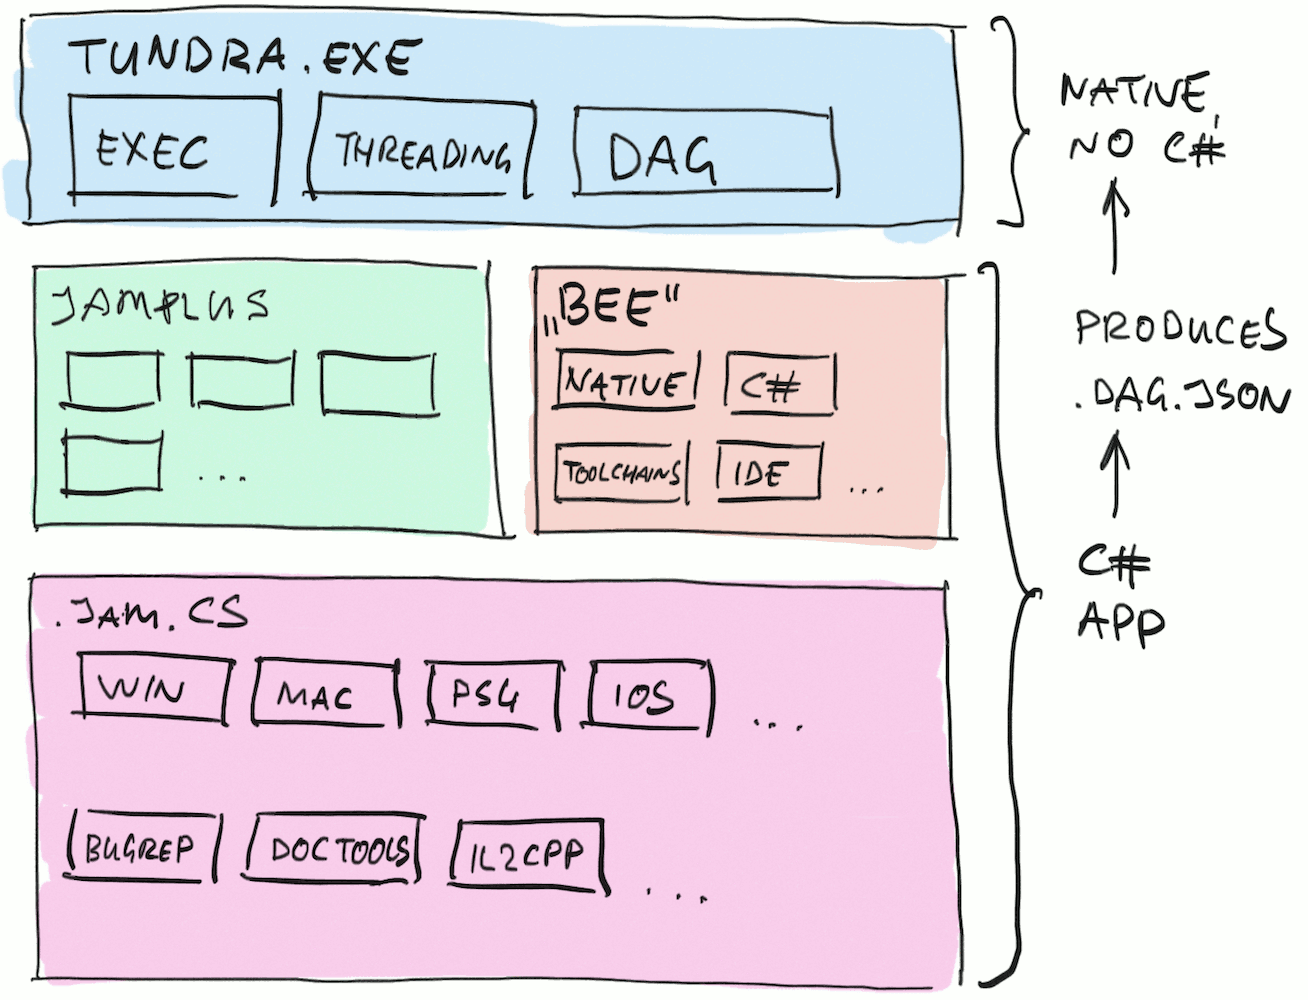 TUNDRA.EXE
EXEC
THREADING
DAG
NATIVE,
NO C#
JAMPLUS
...
„BEE"
NATIVE
C#
TOOLCHAINS
IDE
...
PRODUCES
.DAG.JSON
C#
APP
.JAM.CS
WIN
MAC
PS4
IOS
...
BUGREP
DOCTOOLS
IL2CPP
...